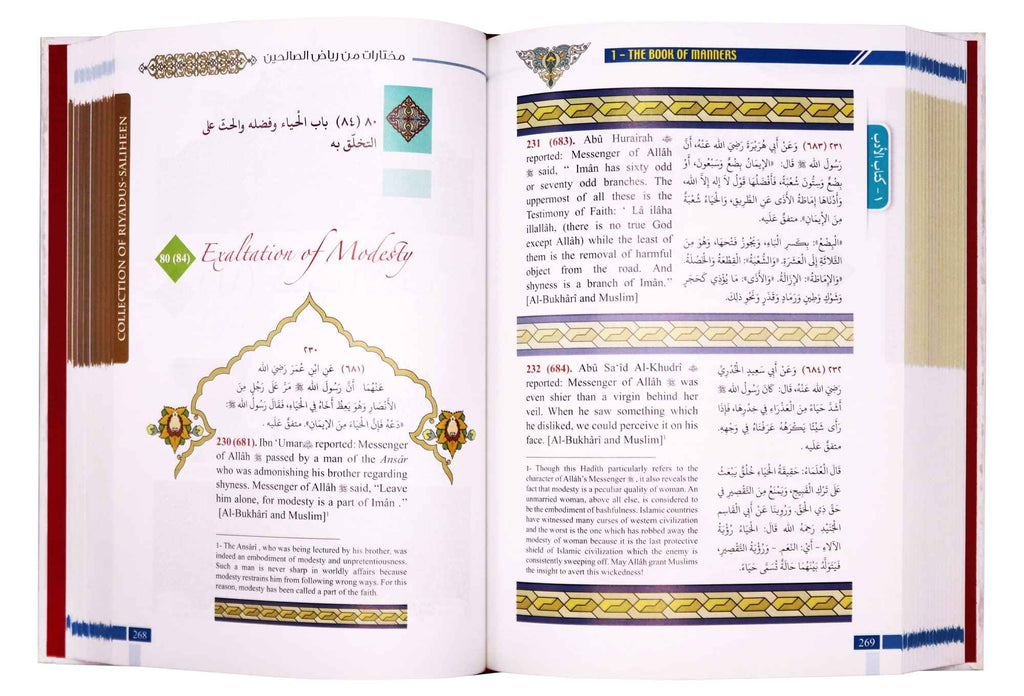 مختارات من رياض الصالحين
COLLECTION OF RIYADUS-SALIHEEN
٨٠ (٨٤) باب الْحياء وفضله والحثّ على
التخلّق به
80 (84)
Exaltation of Modesty
٢٣٠
(٦٨١) عَنِ ابْنِ عُمَرَ رَضِيَ الله
عَنْهُمَا أَنَّ رَسُولَ الله ﷺ مَرَّ عَلَى رَجُلٍ مِنَ
الأَنْصَارِ وَهُوَ يَعِظُ أَخَاهُ فِي الْحَيَاءِ، فَقَالَ رَسُولُ الله ﷺ:
«دَعْهُ فَإِنَّ الْحَيَاءَ مِنَ الإِيمَانِ». متفقٌ عَلَيه.
230 (681). Ibn ‘Umar ﷺ reported: Messenger
of Allâh ﷺ passed by a man of the Ansâr
who was admonishing his brother regarding
shyness. Messenger of Allâh ﷺ said, “Leave
him alone, for modesty is a part of Imân .”
[Al-Bukhârî and Muslim]¹
1- The Ansârî , who was being lectured by his brother, was
indeed an embodiment of modesty and unpretentiousness.
Such a man is never sharp in worldly affairs because
modesty restrains him from following wrong ways. For this
reason, modesty has been called a part of the faith.
268
1 - THE BOOK OF MANNERS
١ - كتاب الأدب
231 (683). Abû Hurairah
reported: Messenger of Allâh
ﷺ said, “ Imân has sixty odd
or seventy odd branches. The
uppermost of all these is the
Testimony of Faith: ‘ Lâ ilâha
illallâh, (there is no true God
except Allâh) while the least of
them is the removal of harmful
object from the road. And
shyness is a branch of Imân.”
[Al-Bukhârî and Muslim]
٢٣١ (٦٨٣) وَعَنْ أَبي هُرَيْرَةَ رَضِيَ الله عَنْهُ، أَنَّ
رَسُولَ الله ﷺ قَالَ: «الإِيمَانُ بِضْعٌ وَسَبْعُونَ، أَوْ
بِضْعٌ وَسِتُّونَ شُعْبَةً، فَأَفْضَلُهَا قَوْلُ لاَ إِلهَ إِلاَّ الله،
وَأَدْنَاهَا إِمَاطَةُ الأَذَى عَنِ الطَّرِيقِ، وَالْحَيَاءُ شُعْبَةٌ
مِنَ الإِيمَانِ». متفقٌ عَلَيه.
«الْبِضْعُ»: بِكَسرِ الْبَاءِ، وَيَجُوزُ فَتْحُهَا، وَهُوَ مِنَ
الثَّلاثَةِ إِلَى الْعَشَرَةِ. «وَالشُّعْبَةُ»: الْقِطْعَةُ وَالْخَصْلَةُ.
«وَالإِمَاطَةُ»: الإِزَالَةُ. «وَالأَذَى»: مَا يُؤذِي كَحَجَرٍ
وَشَوْكٍ وَطِينٍ وَرَمَادٍ وَقَذَرٍ وَنَحْوِ ذلِكَ.
232 (684). Abû Sa‘îd Al-Khudrî
reported: Messenger of Allâh ﷺ was
even shier than a virgin behind her
veil. When he saw something which
he disliked, we could perceive it on his
face. [Al-Bukhârî and Muslim]¹
1- Though this Hadîth particularly refers to the
character of Allâh’s Messenger ﷺ , it also reveals the
fact that modesty is a peculiar quality of woman. An
unmarried woman, above all else, is considered to
be the embodiment of bashfulness. Islamic countries
have witnessed many curses of western civilization
and the worst is the one which has robbed away the
modesty of woman because it is the last protective
shield of Islamic civilization which the enemy is
consistently sweeping off. May Allâh grant Muslims
the insight to avert this wickedness!
٢٣٢ (٦٨٤) وَعَنْ أَبي سَعِيدٍ الْخُدْرِيِّ
رَضِيَ الله عَنْهُ، قَالَ: كَانَ رَسُولُ الله ﷺ
أَشَدَّ حَيَاءً مِنَ الْعَذْرَاءِ فِي خِدْرِهَا، فَإِذَا
رَأَى شَيْئًا يَكْرَهُهُ عَرَفْنَاهُ فِي وَجْهِهِ.
متفقٌ عَلَيه.
قَالَ الْعُلَمَاءُ: حَقِيقَةُ الْحَيَاءِ خُلُقٌ يَبْعَثُ
عَلَى تَرْكِ الْقَبِيحِ، وَيَمْنَعُ مِنَ التَّقْصِيرِ فِي
حَقِّ ذِي الْحَقِّ. وَرَوَيْنَا عَنْ أَبي الْقَاسِمِ
الْجُنَيْدِ رَحِمَهُ الله قَالَ: الْحَيَاءُ رُؤْيَةُ
الآلاءِ - أَيْ: النِّعَمِ - وَرُؤْيَةُ التَّقْصِيرِ،
فَيَتَوَلَّدُ بَيْنَهُمَا حَالَةٌ تُسَمَّى حَيَاءً.
269